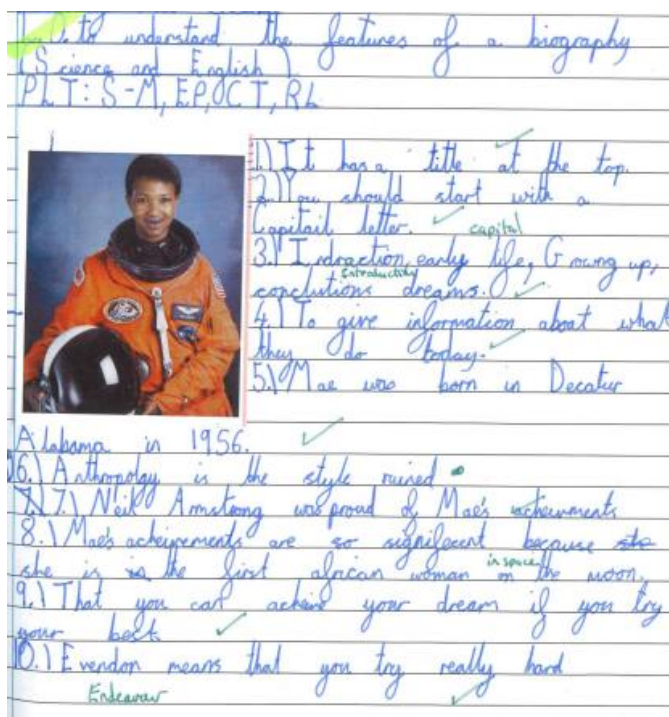 L.O. to understand the features of a biography
(Science and English)
PLT: S-M, EP, CT, RL
1.) It has a title at the top.
2.) You should start with a
Capitail letter. capital
3.) Indraction, early life, Growng up,
Introduction
conclutions dreams.
4.) To give information about what
they do today.
5.) Mae was born in Decatur
Alabama in 1956.
6.) Anthropolgy is the style
7.) 7.) Neil Armstrong was proud of Mae's
8.) Mae's are so because
she is the first african woman on the moon.
in space
9.) That you can your dream if you try
your best.
10.) Evendon means that you try really hard
Endeavour